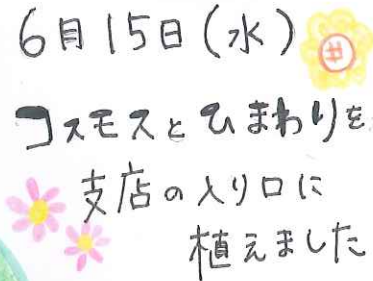 6月15日(水)
コスモスとひまわりを
支店の入り口に
植えました